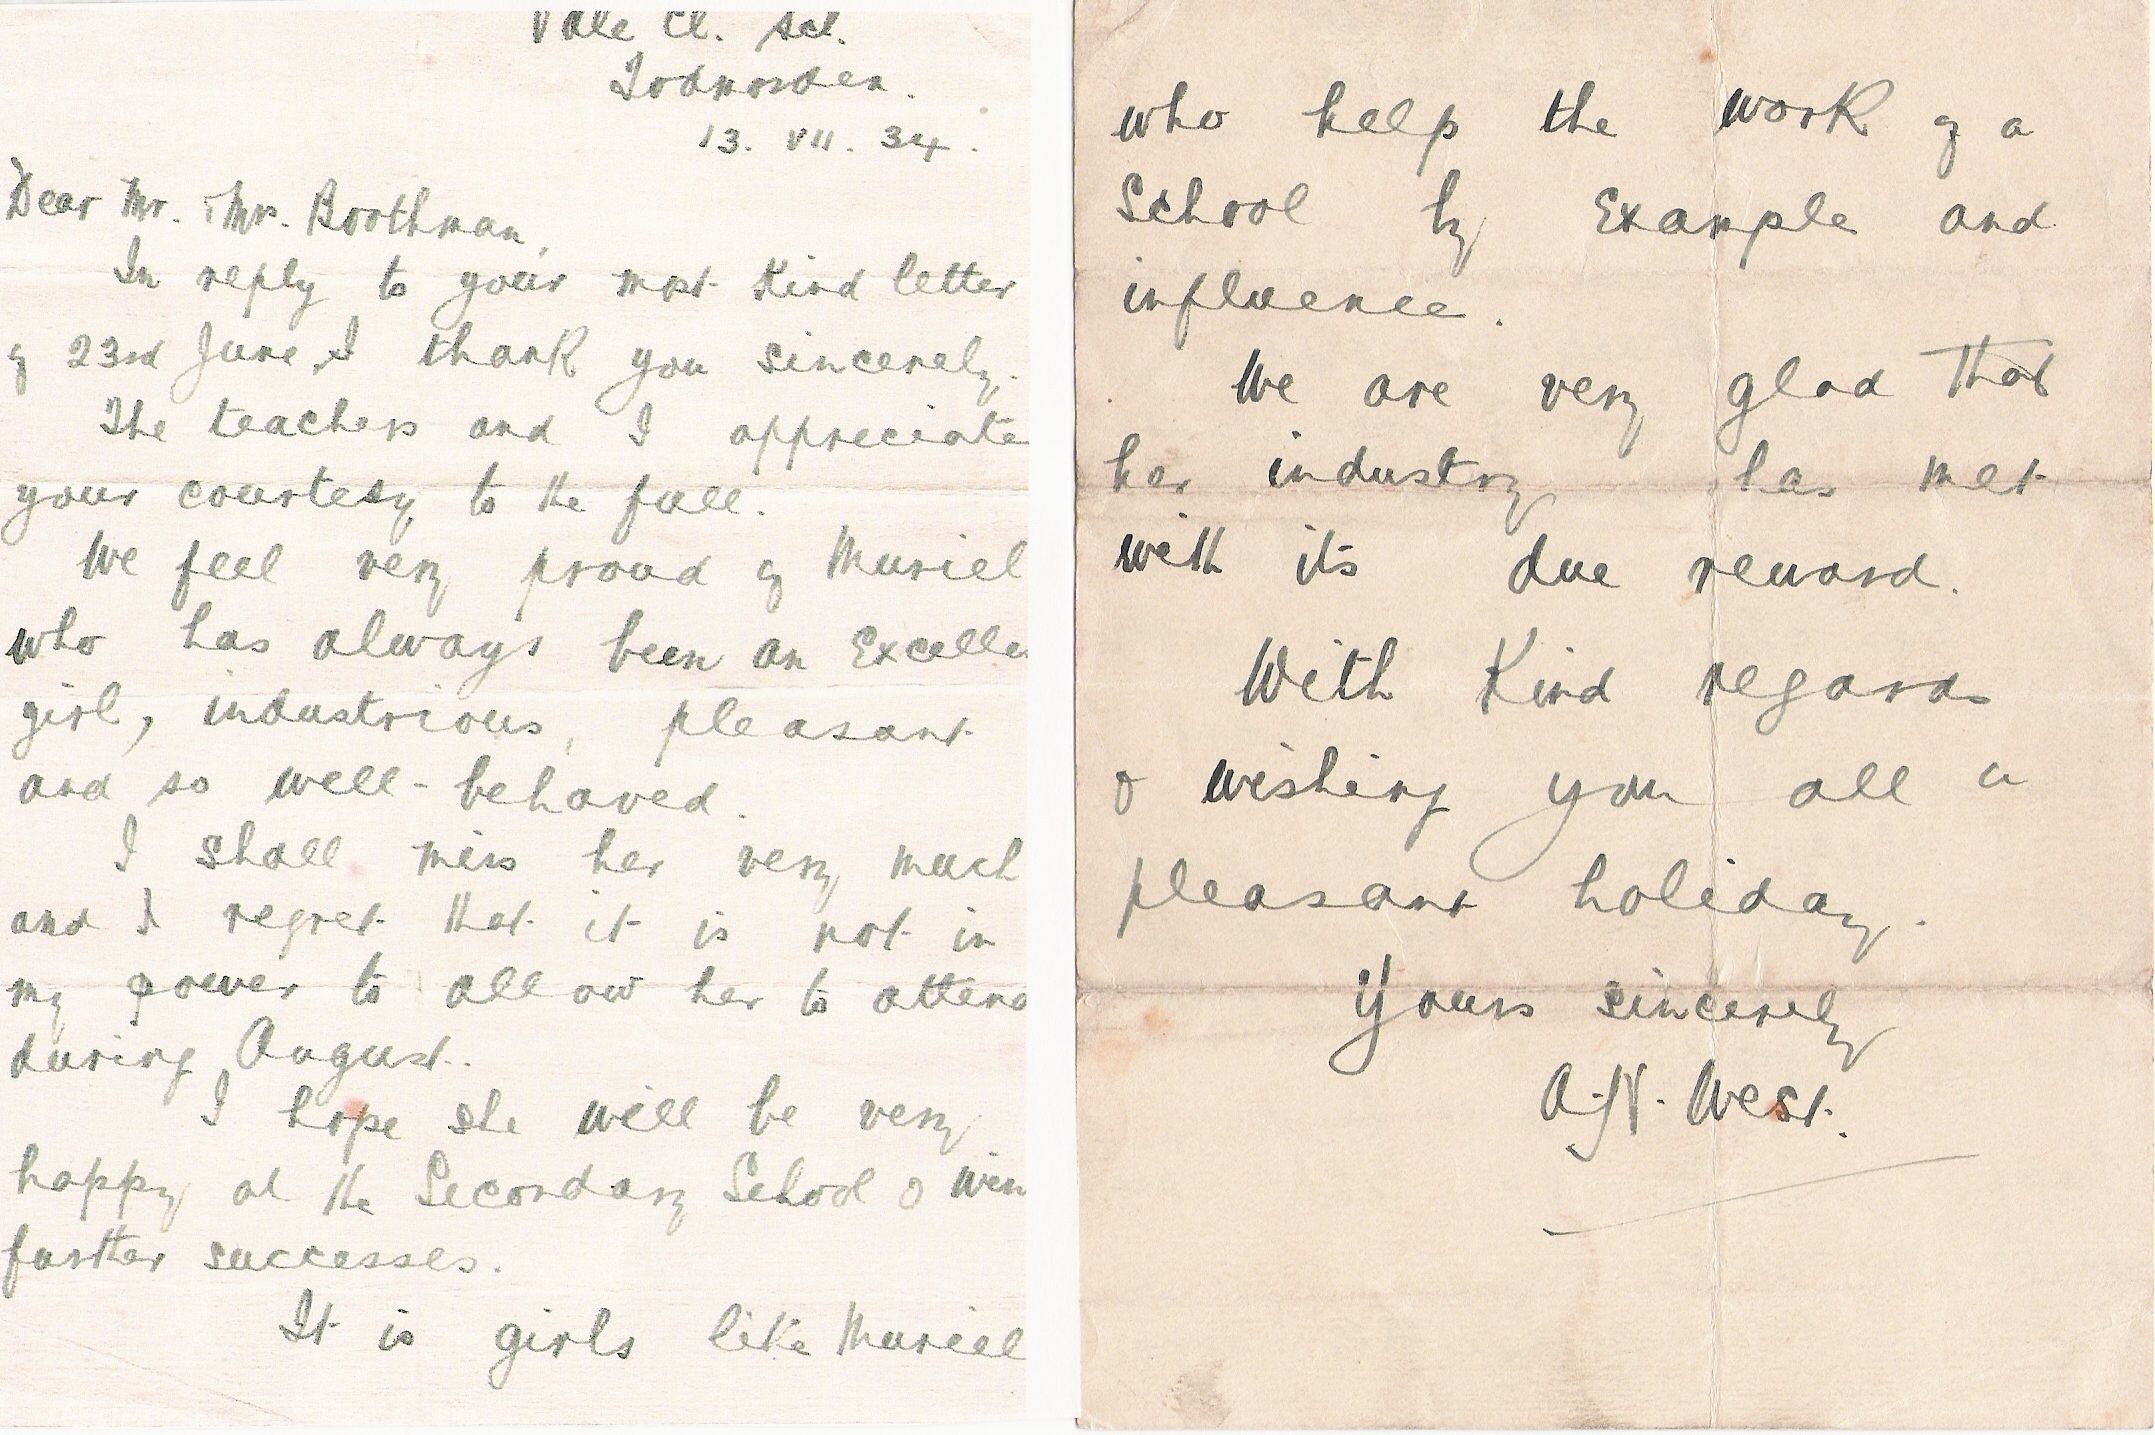 Vale Cl. Scl.
Todmorden.
13. VII. 34.
Dear Mr. Mrs. Boothman,
In reply to your most kind letter
of 23rd June, I thank you sincerely.
The teachers and I appreciate
your courtesy to the full.
We feel very proud of Muriel
who has always been an Excelle
girl, industrious, pleasant
and so well-behaved.
I shall miss her very much
and I regret that it is not in
my power to allow her to attend
during August.
I hope she will be very
happy at the Secondary School & win
further successes.
It is girls like Muriel
who help the work of a
School by Example and
influence.
We are very glad that
her industry has met
with its due reward.
With Kind regards
& wishing you all a
pleasant holiday.
Yours sincerely
A. N. West.